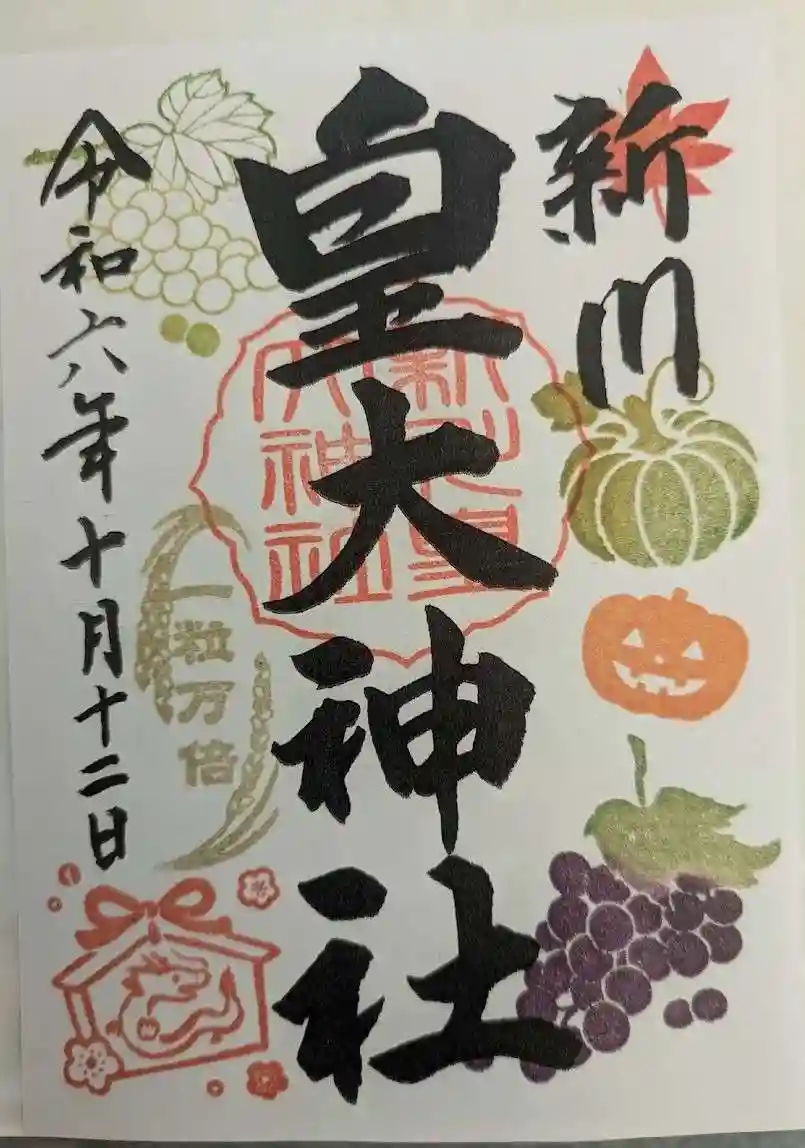 新川
皇大神社
新川皇
大神社
一粒万倍
令和六年十月十二日